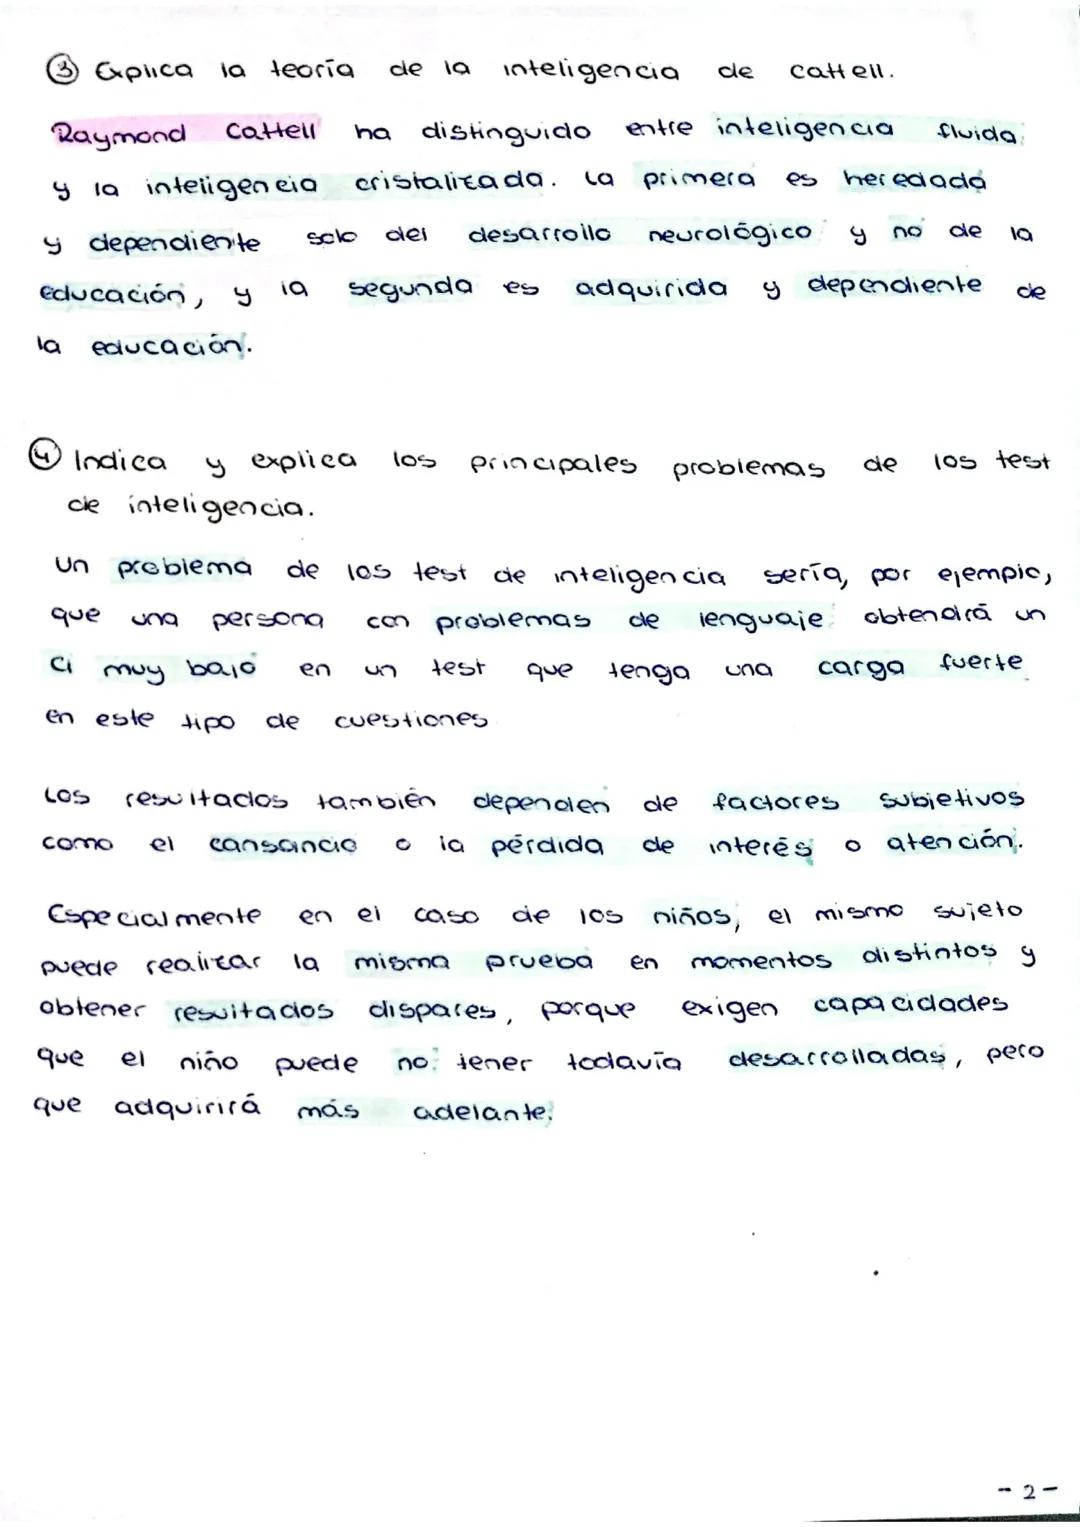 ③ Explica la teoría de la inteligencia de Cattell.
Raymond Cattell ha distinguido entre inteligencia fluida
y la inteligencia cristalizada. La primera es heredada
y dependiente solo del desarrollo neurológico y no de la
educación, y la segunda es adquirida y dependiente de
la educación.
④ Indica y explica los principales problemas de los test
de inteligencia.
Un problema de los test de inteligencia sería, por ejemplo,
que una persona con problemas de lenguaje obtendrá un
CI muy bajo en un test que tenga una carga fuerte
en este tipo de cuestiones
Los resultados también dependen de factores subjetivos
como el cansancio o la pérdida de interés o atención.
Especialmente en el caso de los niños, el mismo sujeto
puede realizar la misma prueba en momentos distintos y
obtener resultados dispares, porque exigen capacidades
que el niño puede no tener todavía desarrolladas, pero
que adquirirá más adelante.
- 2 -